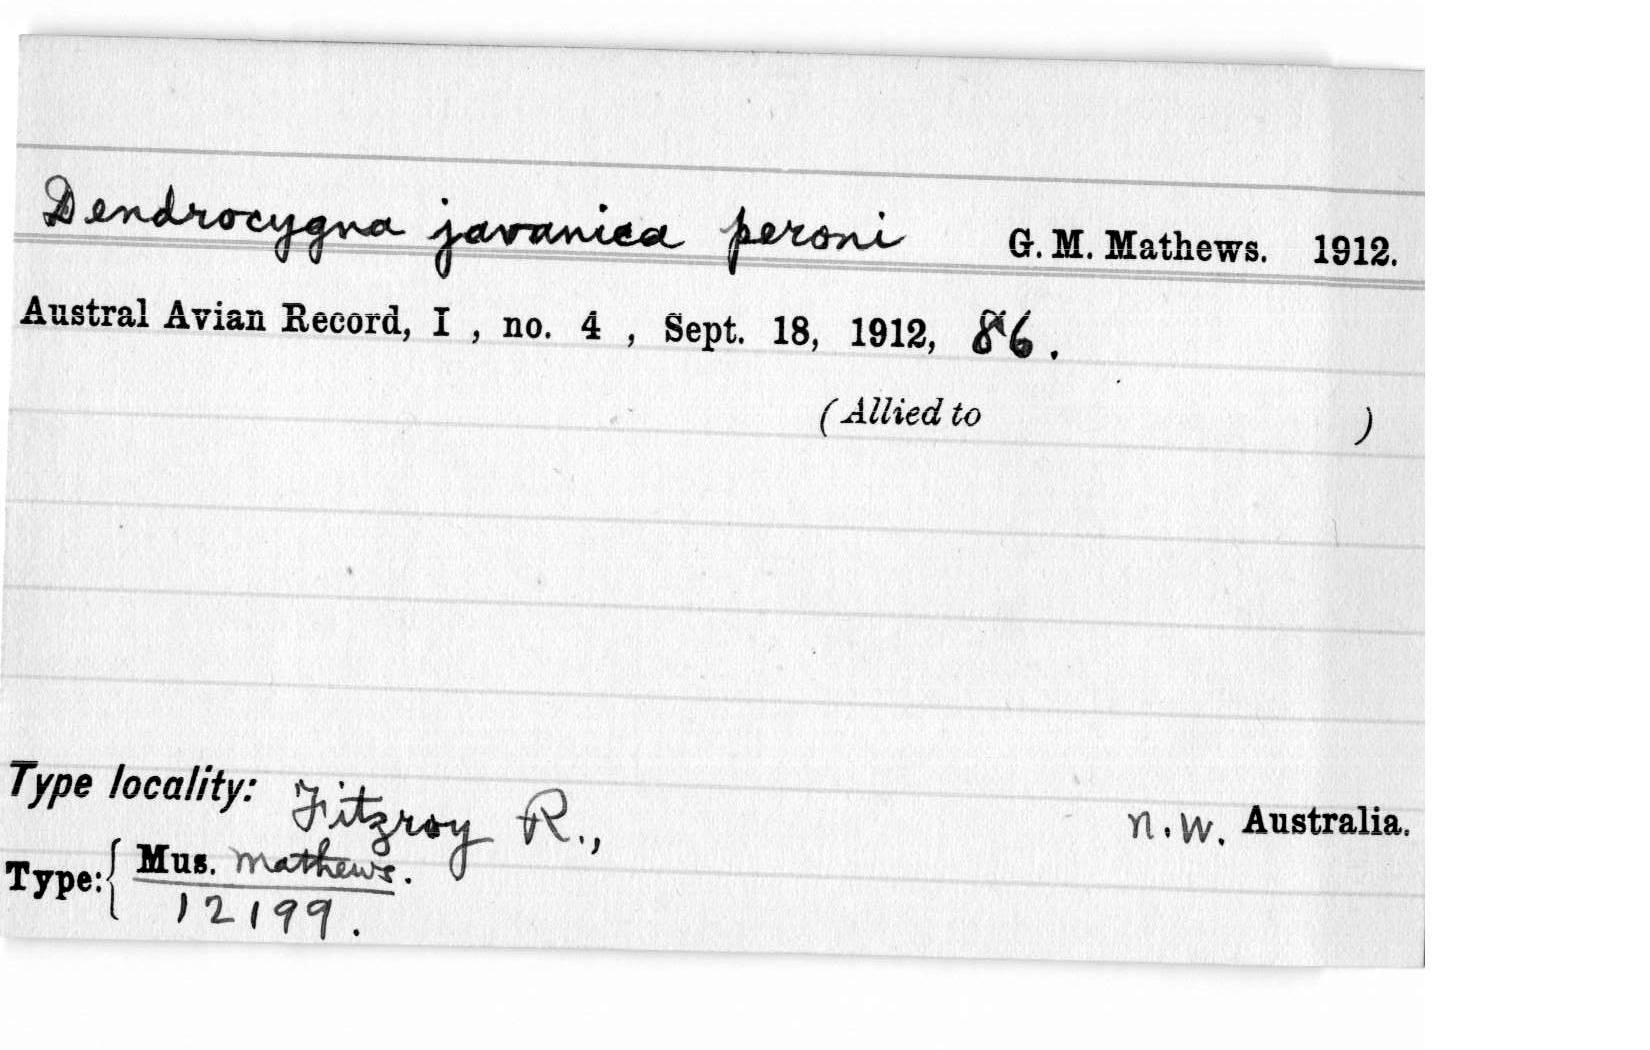 Dendrocygna javanica peroni G. M. Mathews. 1912.
Austral Avian Record, I , no. 4 , Sept. 18, 1912, 86.
(Allied to )
Type locality: Fitzroy R., N.W. Australia.
Type: { Mus. Mathews.
12199.